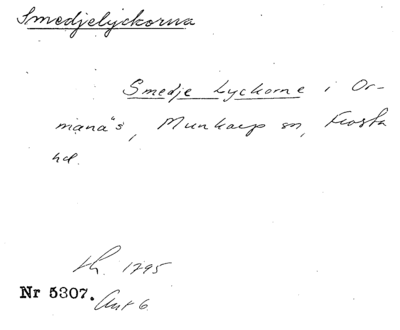 Smedjelyckorna
Smedje Lyckorne i Or-
mana's, Munkarp sn, Frosta
hd.
1795
Nr 5307. Akt 6